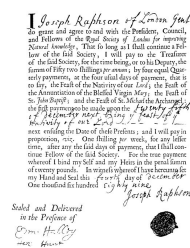 I Joseph Raphson of London Gent
do grant and agree to and with the President, Council,
and Fellows of the Royal Society of London for improving
Natural knowledge, That so long as I shall continue a Fel-
low of the said Society, I will pay to the Treasurer
of the said Society, for the time being, or to his Deputy, the
summ of Fifty two shillings per annum; by four equal Quar-
terly payments, at the four usual days of payment, that is
to say, the Feast of the Nativity of our Lord; the Feast of
the Annunciation of the Blessed Virgin Mary; the Feast of
St. John Baptist; and the Feast of St. Michael the Archangel:
the first payment to be made upon the
of December next being ye feast of ye
Nativity of our Lord
next ensuing the Date of these Presents; and I will pay in
proportion, viz. One shilling per week, for any lesser
time, after any the said days of payment, that I shall conti-
nue Fellow of the said Society. For the true payment
whereof I bind my self and my Heirs in the penal summ
of twenty pounds. In witness whereof I have hereunto set
my Hand and Seal this fourth day of december
One thousand six hundred eighty nine
Joseph Raphson
Sealed and Delivered
in the Presence of
Edm: Halley
Hen Hunt